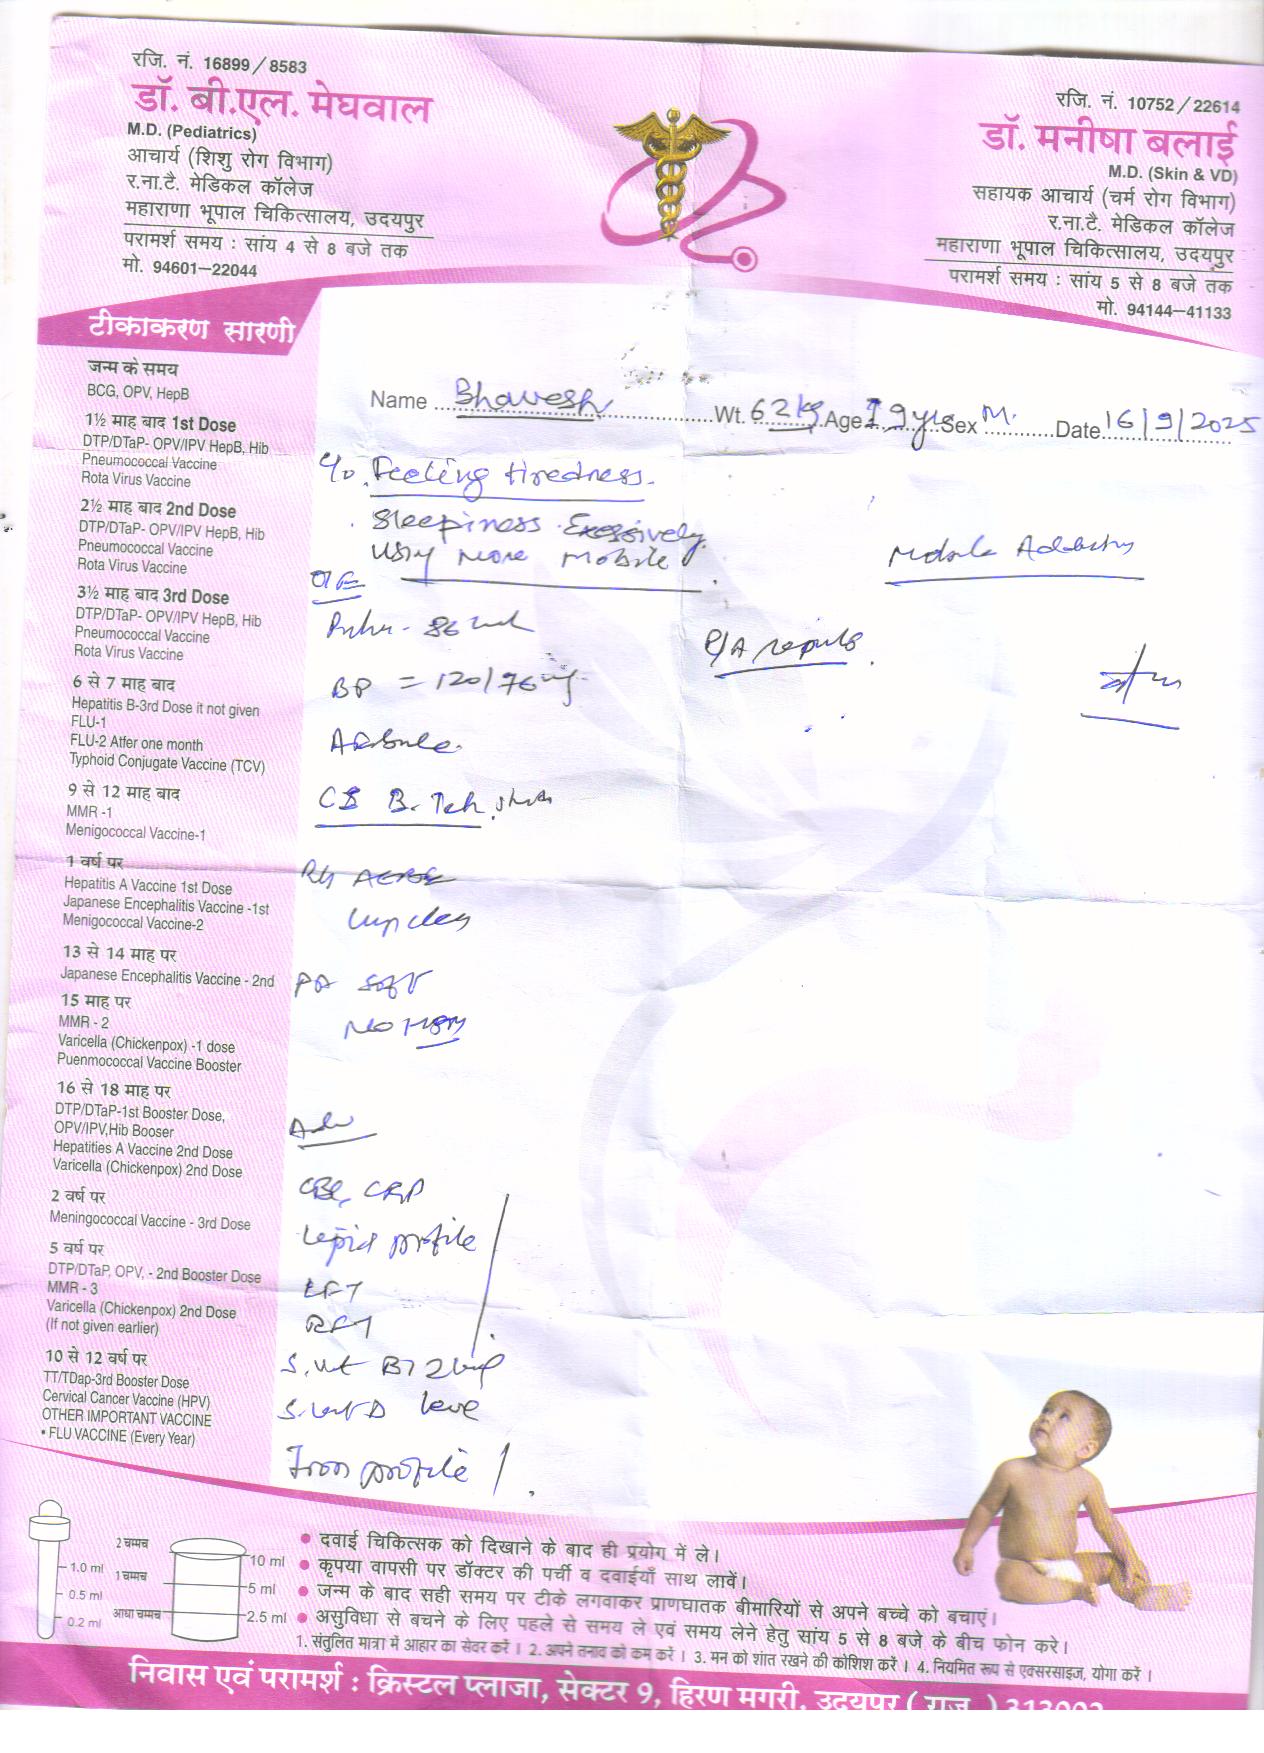 रजि. नं. 16899/8583
डॉ. बी.एल. मेघवाल
M.D. (Pediatrics)
आचार्य (शिशु रोग विभाग)
र.ना.टै. मेडिकल कॉलेज
महाराणा भूपाल चिकित्सालय, उदयपुर
परामर्श समय : सांय 4 से 8 बजे तक
मो. 94601-22044
रजि. नं. 10752/22614
डॉ. मनीषा बलाई
M.D. (Skin & VD)
सहायक आचार्य (चर्म रोग विभाग)
र.ना.टै. मेडिकल कॉलेज
महाराणा भूपाल चिकित्सालय, उदयपुर
परामर्श समय : सांय 5 से 8 बजे तक
मो. 94144-41133
टीकाकरण सारणी
जन्म के समय
BCG, OPV, HepB
1½ माह बाद 1st Dose
DTP/DTaP- OPV/IPV HepB, Hib
Pneumococcal Vaccine
Rota Virus Vaccine
2½ माह बाद 2nd Dose
DTP/DTaP- OPV/IPV HepB, Hib
Pneumococcal Vaccine
Rota Virus Vaccine
3½ माह बाद 3rd Dose
DTP/DTaP- OPV/IPV HepB, Hib
Pneumococcal Vaccine
Rota Virus Vaccine
6 से 7 माह बाद
Hepatitis B-3rd Dose it not given
FLU-1
FLU-2 Atfer one month
Typhoid Conjugate Vaccine (TCV)
9 से 12 माह बाद
MMR -1
Menigococcal Vaccine-1
1 वर्ष पर
Hepatitis A Vaccine 1st Dose
Japanese Encephalitis Vaccine -1st
Menigococcal Vaccine-2
13 से 14 माह पर
Japanese Encephalitis Vaccine - 2nd
15 माह पर
MMR - 2
Varicella (Chickenpox) -1 dose
Puenmococcal Vaccine Booster
16 से 18 माह पर
DTP/DTaP-1st Booster Dose,
OPV/IPV,Hib Booser
Hepatities A Vaccine 2nd Dose
Varicella (Chickenpox) 2nd Dose
2 वर्ष पर
Meningococcal Vaccine - 3rd Dose
5 वर्ष पर
DTP/DTaP, OPV, - 2nd Booster Dose
MMR - 3
Varicella (Chickenpox) 2nd Dose
(If not given earlier)
10 से 12 वर्ष पर
TT/TDap-3rd Booster Dose
Cervical Cancer Vaccine (HPV)
OTHER IMPORTANT VACCINE
• FLU VACCINE (Every Year)
Name Bhavesh Wt. 62 kg Age 19 yrs Sex M. Date 16/9/2025
C/o Feeling tiredness.
Sleepiness Exessively
Using more Mobile
O/E
Pulse - 86
BP = 120/76
Afebrile
CS B. Tech
RS AEBE
PA Soft
No HSM
Mobile
R/A reports
Adv
CBC, CRP
Lepid profile
LFT
RFT
S. Vit B12
S. Vit D level
Iron profile
2 चम्मच
1 चम्मच
आधा चम्मच
1.0 ml
0.5 ml
0.2 ml
10 ml
5 ml
2.5 ml
● दवाई चिकित्सक को दिखाने के बाद ही प्रयोग में ले।
● कृपया वापसी पर डॉक्टर की पर्ची व दवाईयाँ साथ लावें।
● जन्म के बाद सही समय पर टीके लगवाकर प्राणघातक बीमारियों से अपने बच्चे को बचाएं।
● असुविधा से बचने के लिए पहले से समय ले एवं समय लेने हेतु सांय 5 से 8 बजे के बीच फोन करे।
1. संतुलित मात्रा में आहार का सेवर करें। 2. अपने तनाव को कम करें। 3. मन को शांत रखने की कोशिश करें। 4. नियमित रूप से एक्सरसाइज, योगा करें।
निवास एवं परामर्श : क्रिस्टल प्लाजा, सेक्टर 9, हिरण मगरी, उदयपुर ( राज. ) 313002